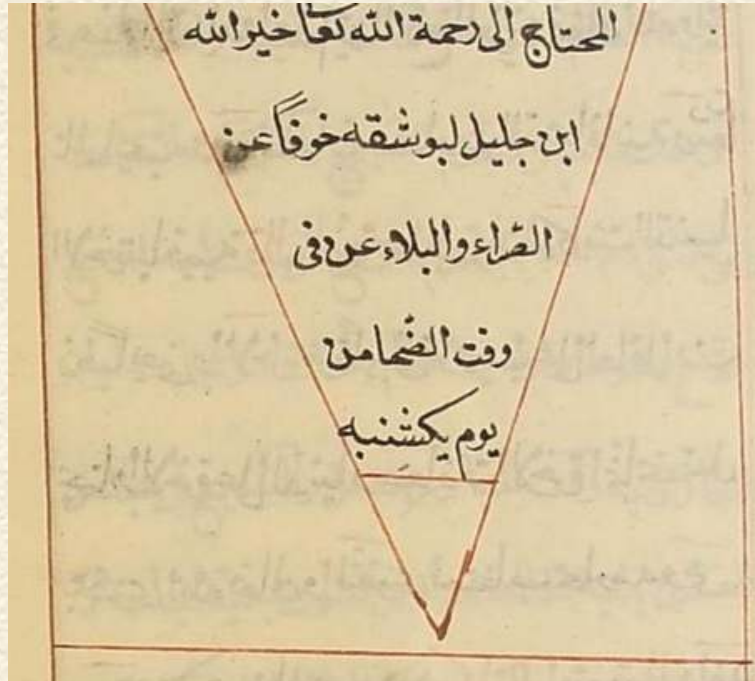 المحتاج الى رحمة الله تعا خير الله
ابن جليل لبوشقه خوفاً عن
الضراء والبلاء عن فى
وقت الضحا من
يوم يكشنبه